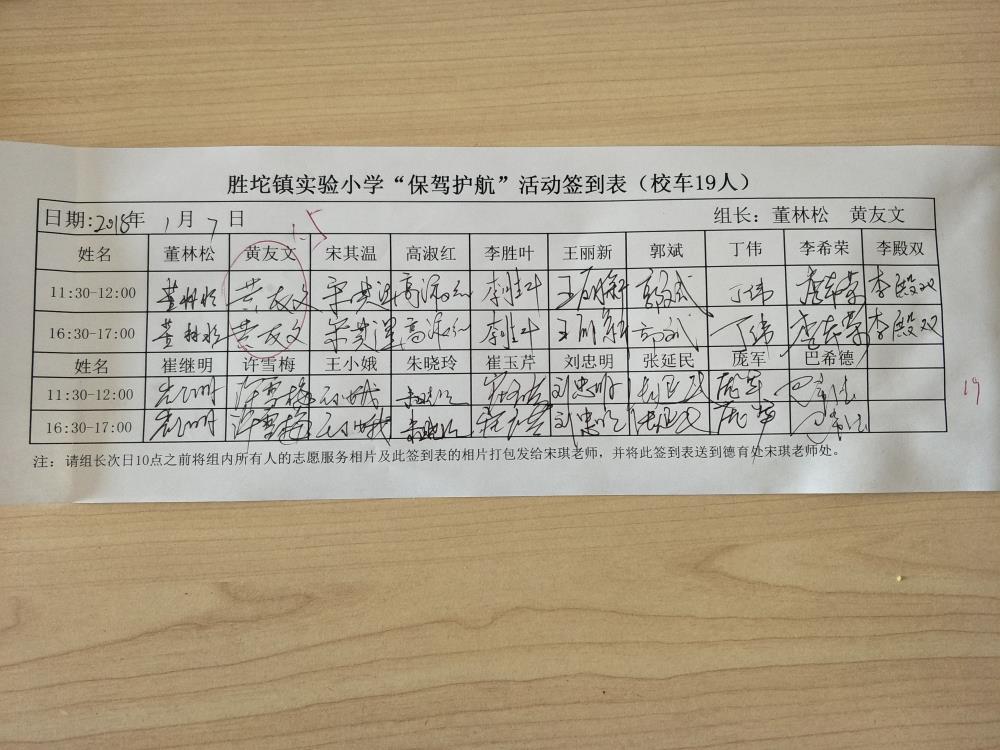 胜坨镇实验小学“保驾护航”活动签到表（校车19人）
日期:2018年 1月 7日 组长：董林松 黄友文
1-5
姓名 董林松 黄友文 宋其温 高淑红 李胜叶 王丽新 郭斌 丁伟 李希荣 李殿双
11:30-12:00 董林松 黄友文 宋其温 高淑红 李胜叶 王丽新 郭斌 丁伟 李希荣 李殿双
16:30-17:00 董林松 黄友文 宋其温 高淑红 李胜叶 王丽新 郭斌 丁伟 李希荣 李殿双
姓名 崔继明 许雪梅 王小娥 朱晓玲 崔玉芹 刘忠明 张延民 庞军 巴希德
11:30-12:00 许雪梅 王小娥 朱晓玲 崔玉芹 刘忠明 张延民 庞军
19
16:30-17:00 许雪梅 王小娥 朱晓玲 崔玉芹 刘忠明 张延民 庞军
注：请组长次日10点之前将组内所有人的志愿服务相片及此签到表的相片打包发给宋琪老师，并将此签到表送到德育处宋琪老师处。